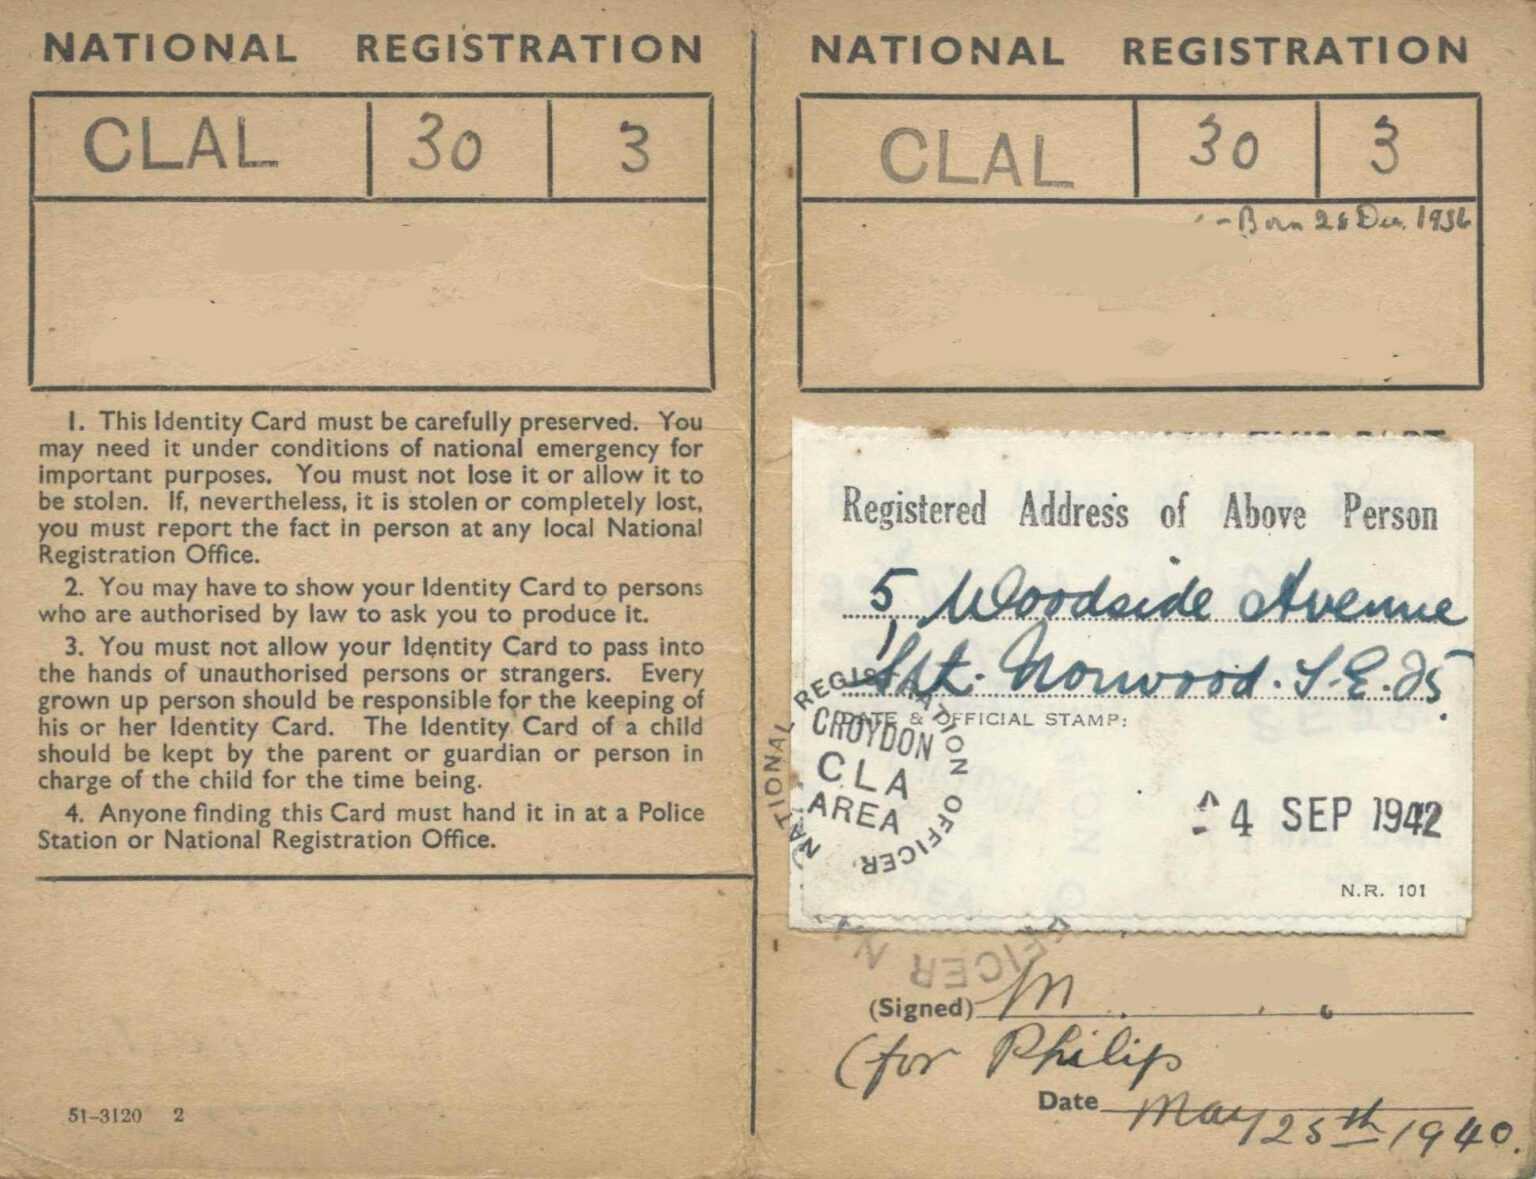 NATIONAL REGISTRATION
CLAL 30 3
1. This Identity Card must be carefully preserved. You
may need it under conditions of national emergency for
important purposes. You must not lose it or allow it to
be stolen. If, nevertheless, it is stolen or completely lost,
you must report the fact in person at any local National
Registration Office.
2. You may have to show your Identity Card to persons
who are authorised by law to ask you to produce it.
3. You must not allow your Identity Card to pass into
the hands of unauthorised persons or strangers. Every
grown up person should be responsible for the keeping of
his or her Identity Card. The Identity Card of a child
should be kept by the parent or guardian or person in
charge of the child for the time being.
4. Anyone finding this Card must hand it in at a Police
Station or National Registration Office.
51-3120 2
NATIONAL REGISTRATION
CLAL 30 3
Born 28 Dec. 1936
Registered Address of Above Person
5 Woodside Avenue
Sth. Norwood. S.E. 25.
DATE & OFFICIAL STAMP:
NATIONAL REGISTRATION OFFICER
CROYDON
CLA
AREA
4 SEP 1942
N.R. 101
OFFICER
(Signed) M
(for Philip
Date May 25th 1940.